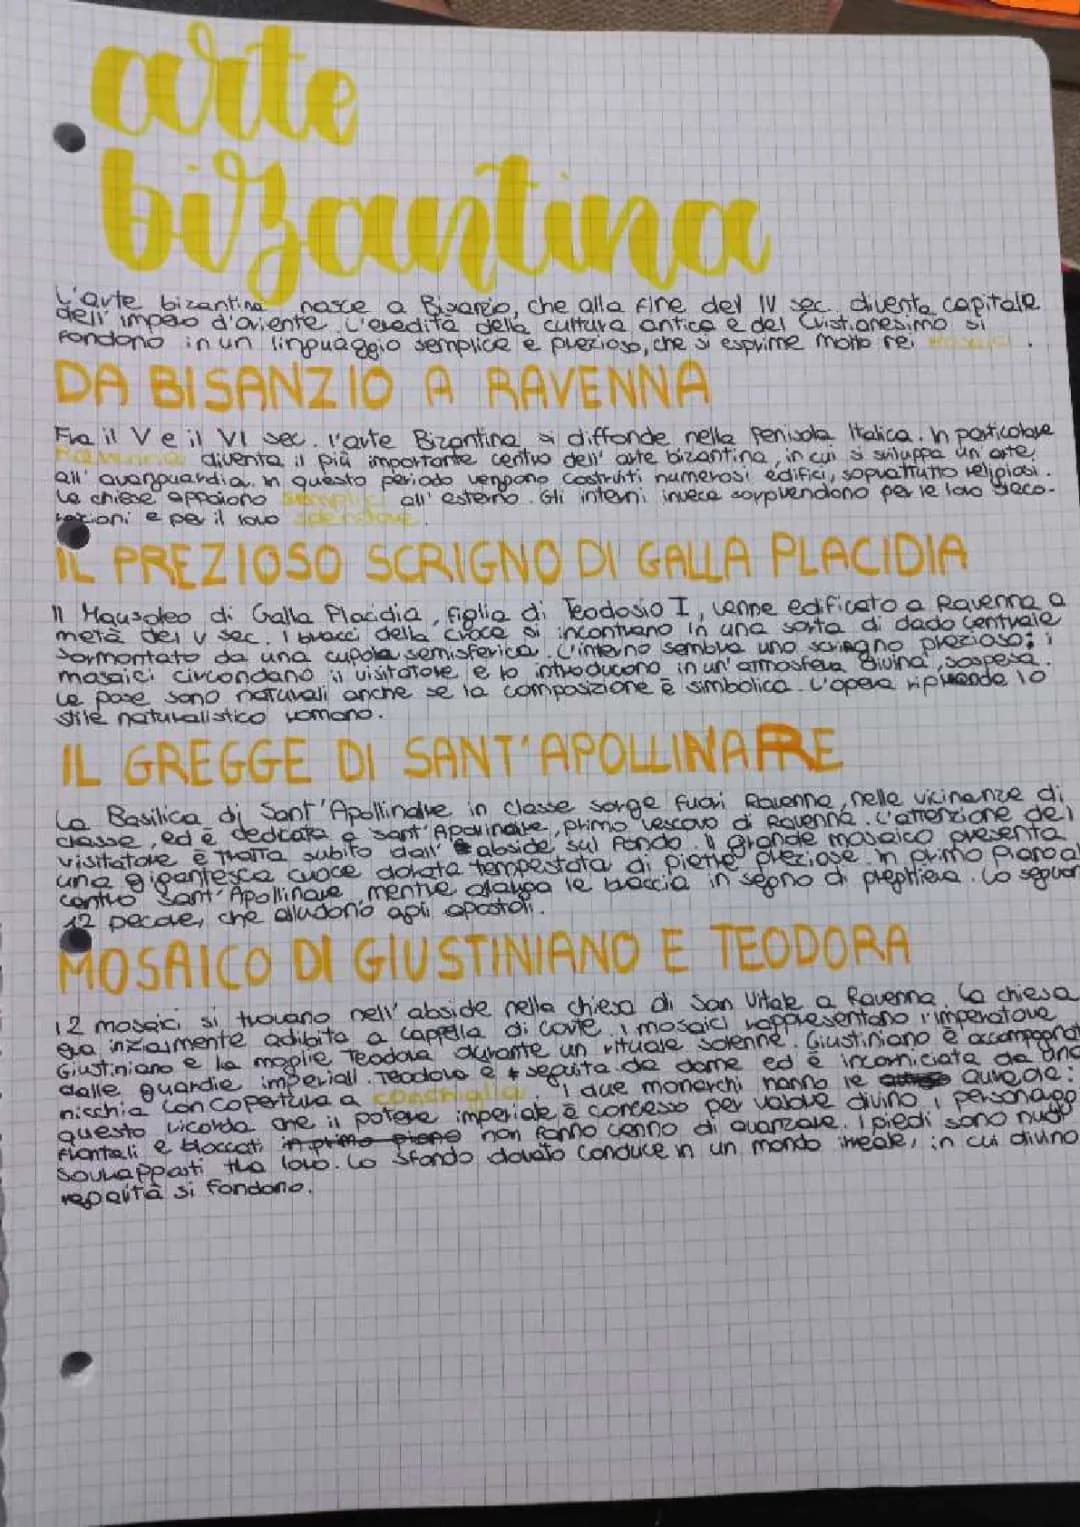 arte
bizantina
L'arte bizantina nasce a Bisanzio, che alla fine del IV sec. diventa capitale
dell'impero d'oriente. L'eredità della cultura antica e del Cristianesimo si
fondono in un linguaggio semplice e prezioso, che si esprime molto nei mosaici.
DA BISANZIO A RAVENNA
Fra il V e il VI sec. l'arte Bizantina si diffonde nella Penisola Italica. In particolare
Ravenna diventa il più importante centro dell'arte bizantina, in cui si sviluppa un'arte
all'avanguardia. In questo periodo vengono costruiti numerosi edifici, soprattutto religiosi.
Le chiese appaiono semplici all'esterno. Gli interni invece sorprendono per le loro deco-
razioni e per il loro splendore.
IL PREZIOSO SCRIGNO DI GALLA PLACIDIA
Il Mausoleo di Galla Placidia, figlia di Teodosio I, venne edificato a Ravenna a
metà del V sec. I bracci della croce si incontrano in una sorta di dado centrale
sormontato da una cupola semisferica. L'interno sembra uno scrigno prezioso: i
mosaici circondano il visitatore e lo introducono in un'atmosfera divina, sospesa.
Le pose sono naturali anche se la composizione è simbolica. L'opera riprende lo
stile naturalistico romano.
IL GREGGE DI SANT'APOLLINARRE
La Basilica di Sant'Apollinare in classe sorge fuori Ravenna, nelle vicinanze di
classe, ed è dedicata a sant'Apollinare, primo vescovo di Ravenna. L'attenzione del
visitatore è tratta subito dall'abside sul fondo. Il grande mosaico presenta
una gigantesca croce dorata tempestata di pietre preziose. In primo piano al
centro Sant'Apollinare, mentre allarga le braccia in segno di preghiera. Lo seguon
12 pecore, che alludono agli apostoli.
MOSAICO DI GIUSTINIANO E TEODORA
I 2 mosaici si trovano nell'abside nella chiesa di San Vitale a Ravenna. La chiesa
era inzialmente adibita a cappella di corte. I mosaici rappresentano l'imperatore
Giustiniano e la moglie Teodora durante un rituale solenne. Giustiniano è accompagnat
dalle guardie imperiali. Teodora è seguita da dame ed è incorniciata da una
nischia con copertura a conchiglia. I due monarchi hanno le aureole:
questo ricorda che il potere imperiale è concesso per volere divino, i personaggi
frontali e bloccati in primo piano non fanno cenno di avanzare. I piedi sono nudi
sovrapposti tra loro. Lo sfondo dorato conduce in un mondo irreale, in cui divino
regalità si fondono.